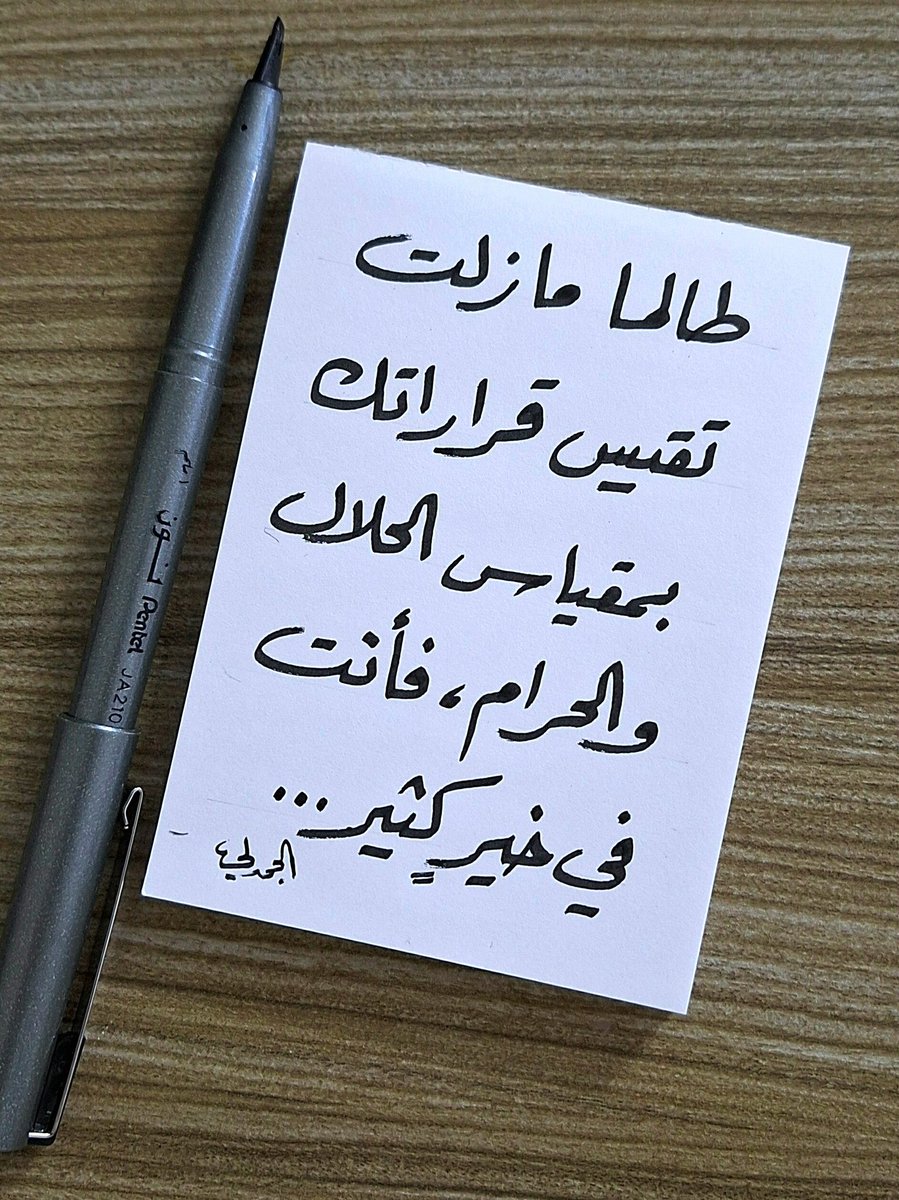 طالما مازلت
تقيس قراراتك
بمقياس الحلال
والحرام، فأنت
في خيرٍ كثير...
Pentel JA210